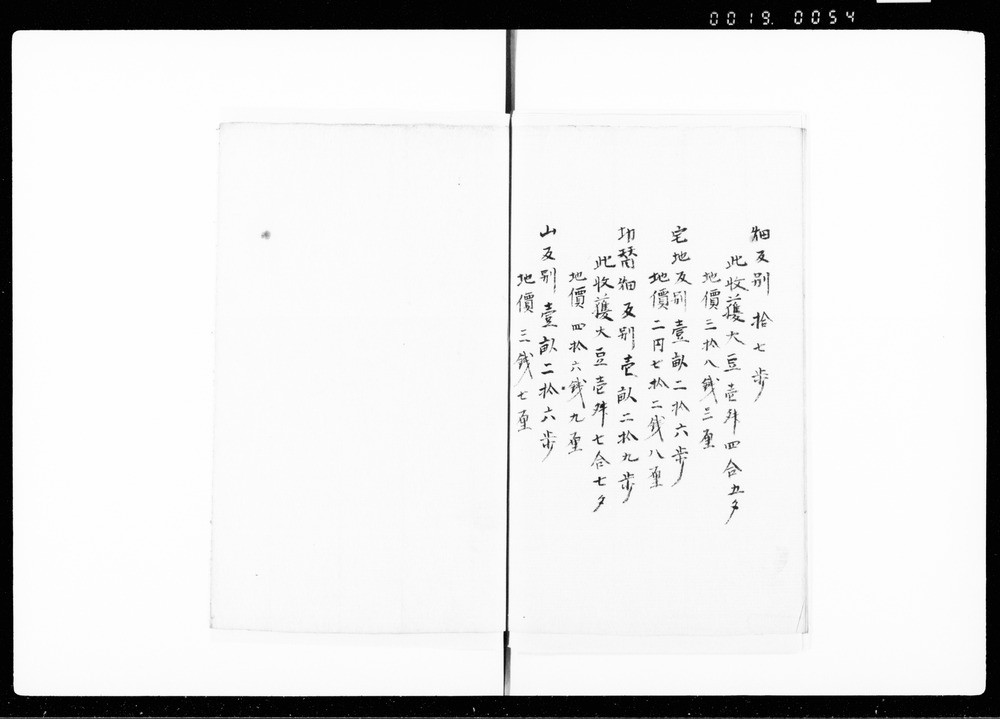 0019. 0054
畑反別 拾七歩
此収獲大豆壱舛四合五夕
地價三拾八銭三厘
宅地反別壹畝二拾六歩
地價二円七拾二銭八厘
切替畑反別壱畝二拾九歩
此收獲大豆壱舛七合七夕
地價四拾六銭九厘
山反別 壹畝二拾六歩
地價三銭七厘